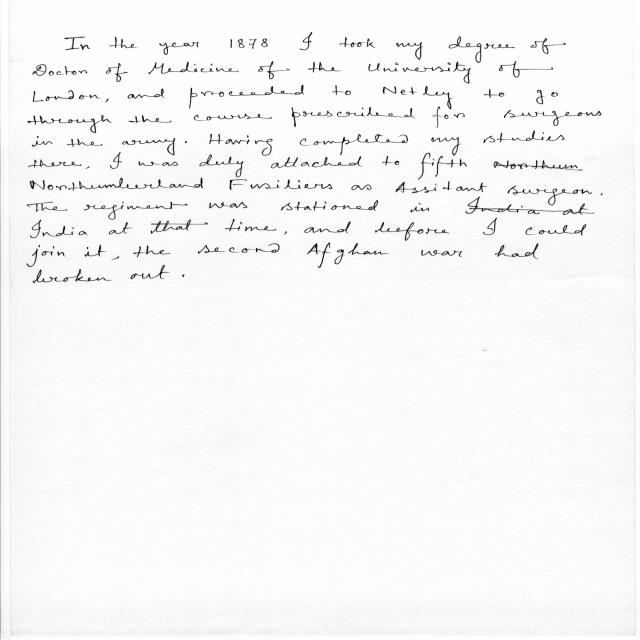 In the year 1878 I took my degree of
Doctor of Medicine of the University of
London, and proceeded to Netley to go
through the course prescribed for surgeons
in the army. Having completed my studies
there, I was duly attached to fifth Northum
Northumberland Fusiliers as Assitant surgeon.
The regiment was stationed in India at
India at that time, and before I could
join it, the second Afghan war had
broken out.